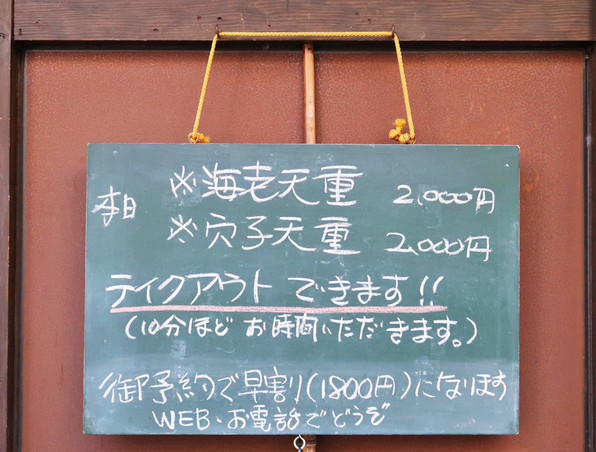 本日
※海老天重 2,000円
※穴子天重 2,000円
テイクアウトできます!!
(10分ほどお時間いただきます。)
御予約で早割り(1800円)になります
WEB・お電話でどうぞ